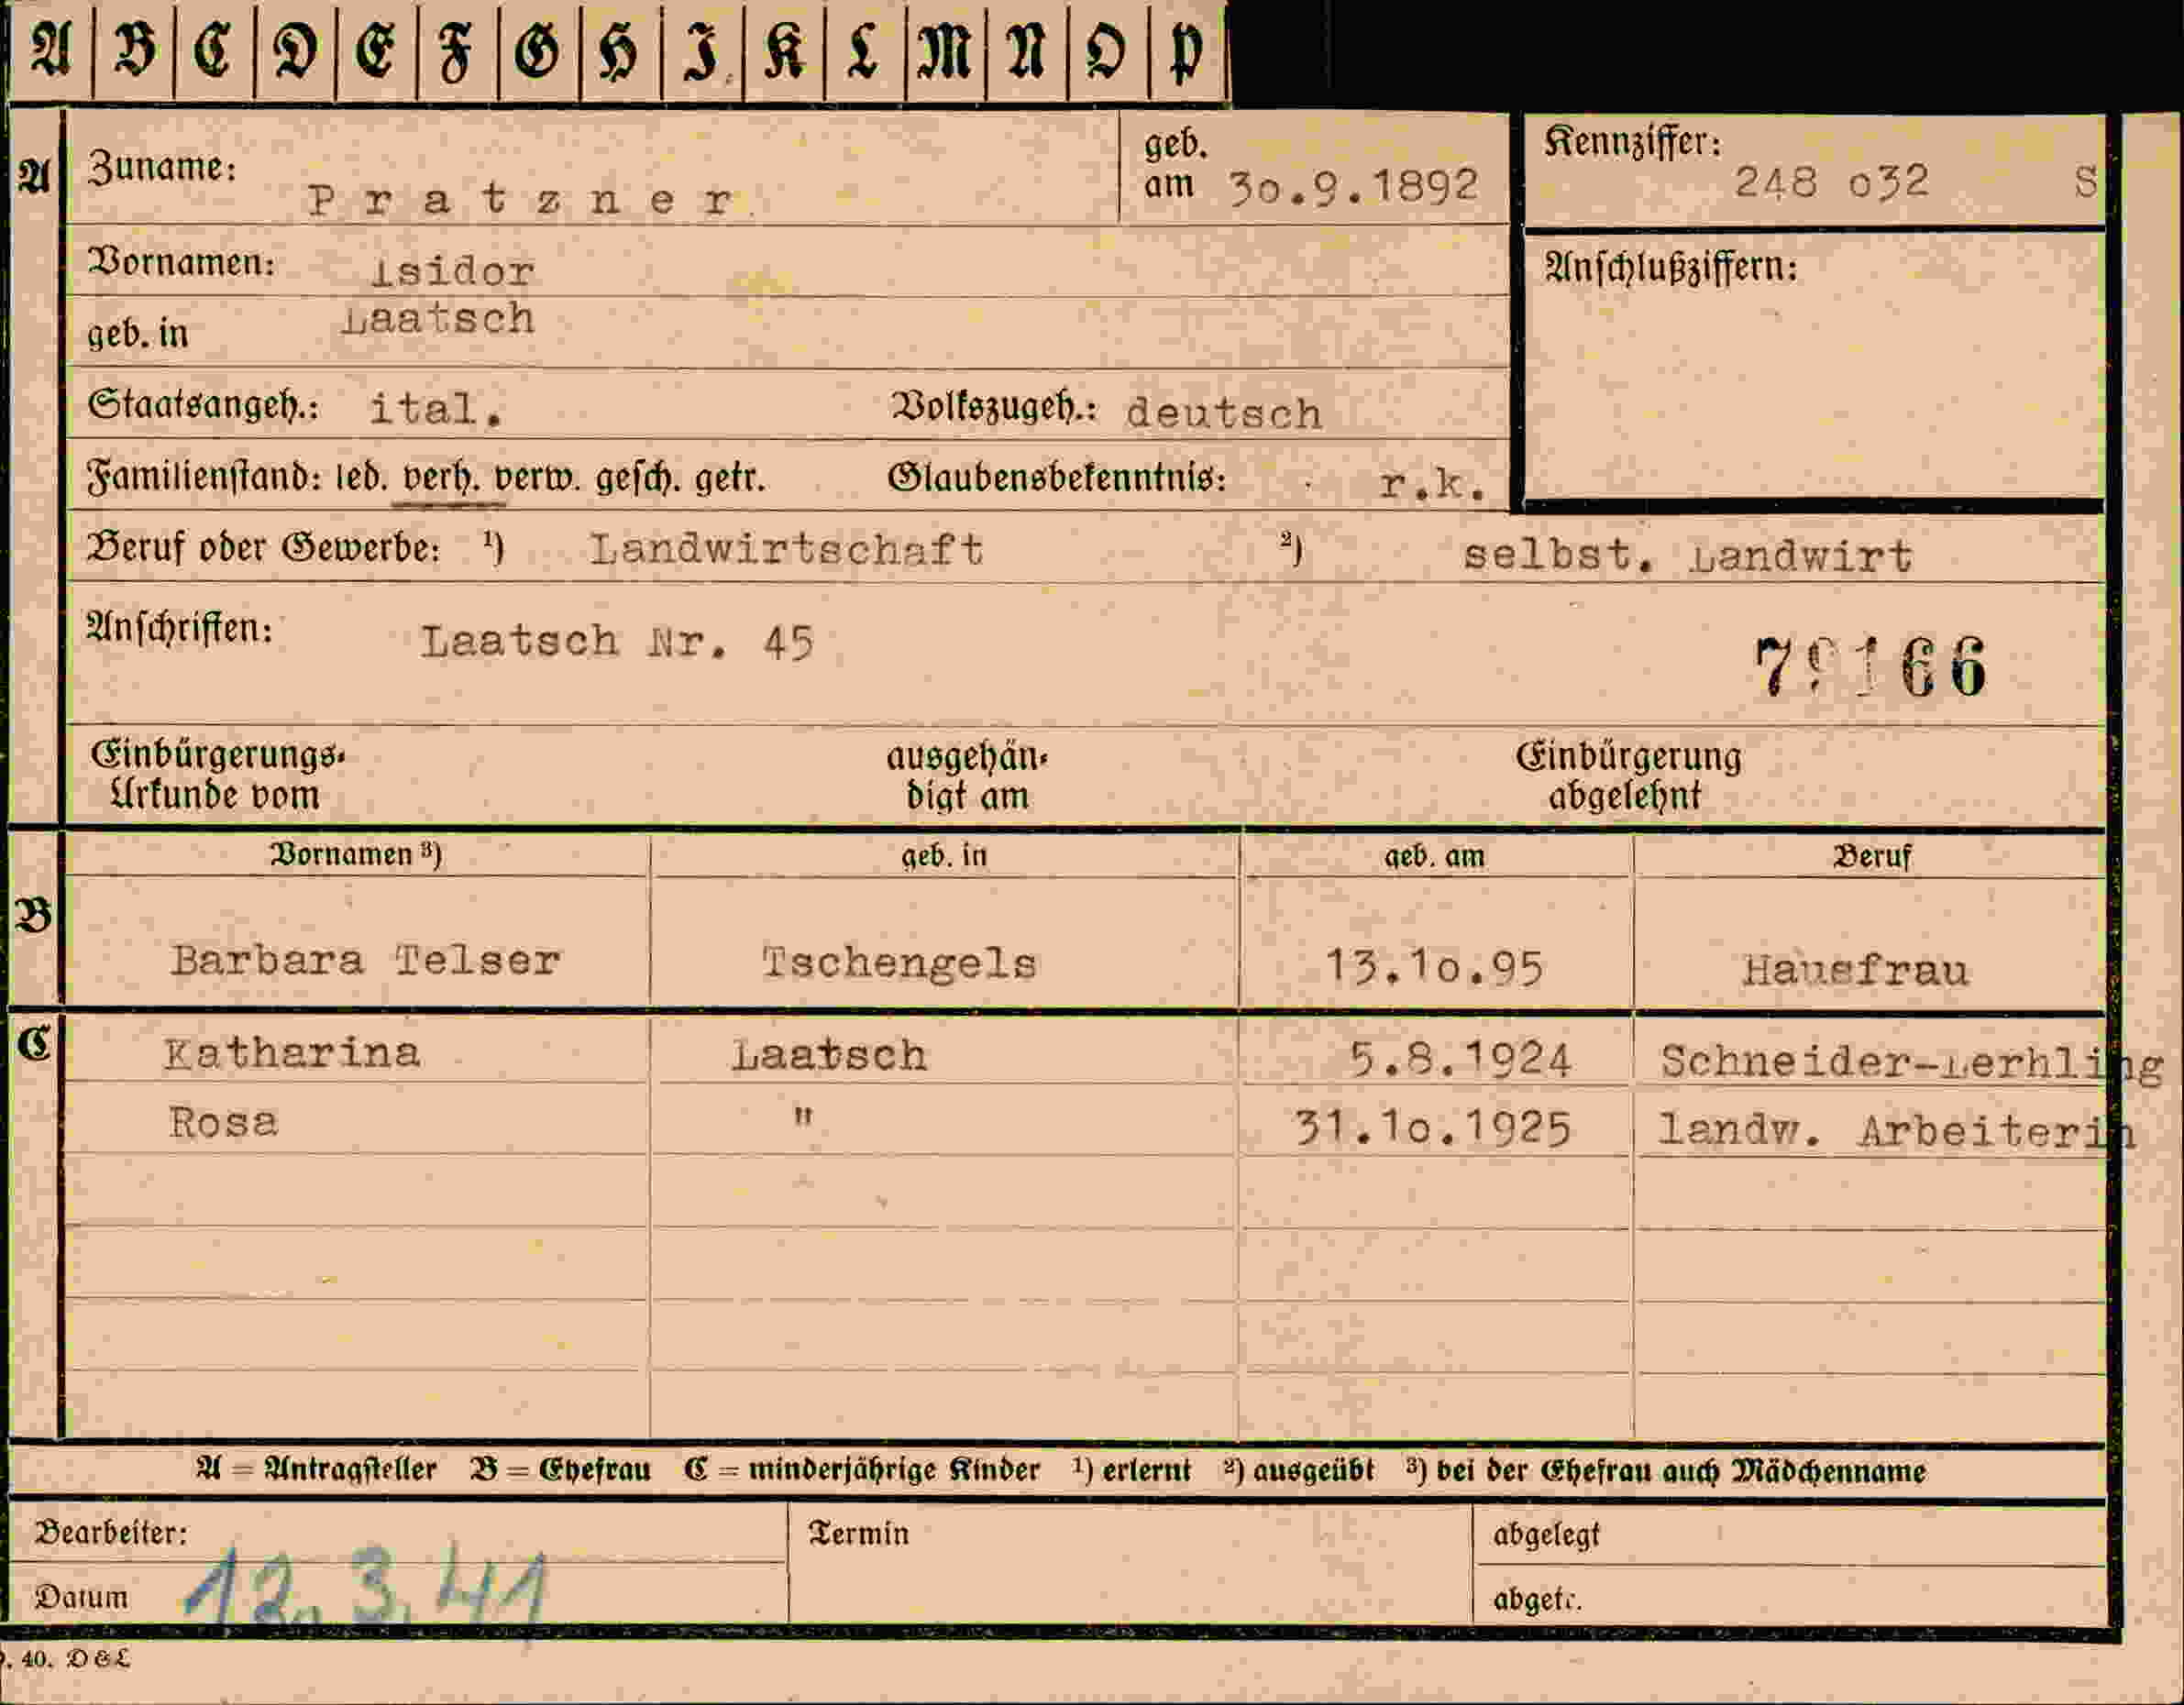 A B C D E F G H I K L M N O P
A Zuname: Pratzner geb. am 3o.9.1892 Kennziffer: 248 o32 S
Vornamen: Isidor Anschlußziffern:
geb. in Laatsch
Staatsangeh.: ital. Volkszugeh.: deutsch
Familienstand: led. verh. verw. gesch. getr. Glaubensbekenntnis: r.k.
Beruf oder Gewerbe: ¹) Landwirtschaft ²) selbst. Landwirt
Anschriften: Laatsch Nr. 45
Einbürgerungs- ausgehän- Einbürgerung
Urkunde vom digt am abgelehnt
Vornamen ³) geb. in geb. am Beruf
B Barbara Telser Tschengels 13.1o.95 Hausfrau
C Katharina Laatsch 5.8.1924 Schneider-Lerhling
Rosa " 31.1o.1925 landw. Arbeiterin
A = Antragsteller B = Ehefrau C = minderjährige Kinder ¹) erlernt ²) ausgeübt ³) bei der Ehefrau auch Mädchenname
Bearbeiter: Termin abgelegt
Datum 12.3.41 abgetr.
. 40. D & L